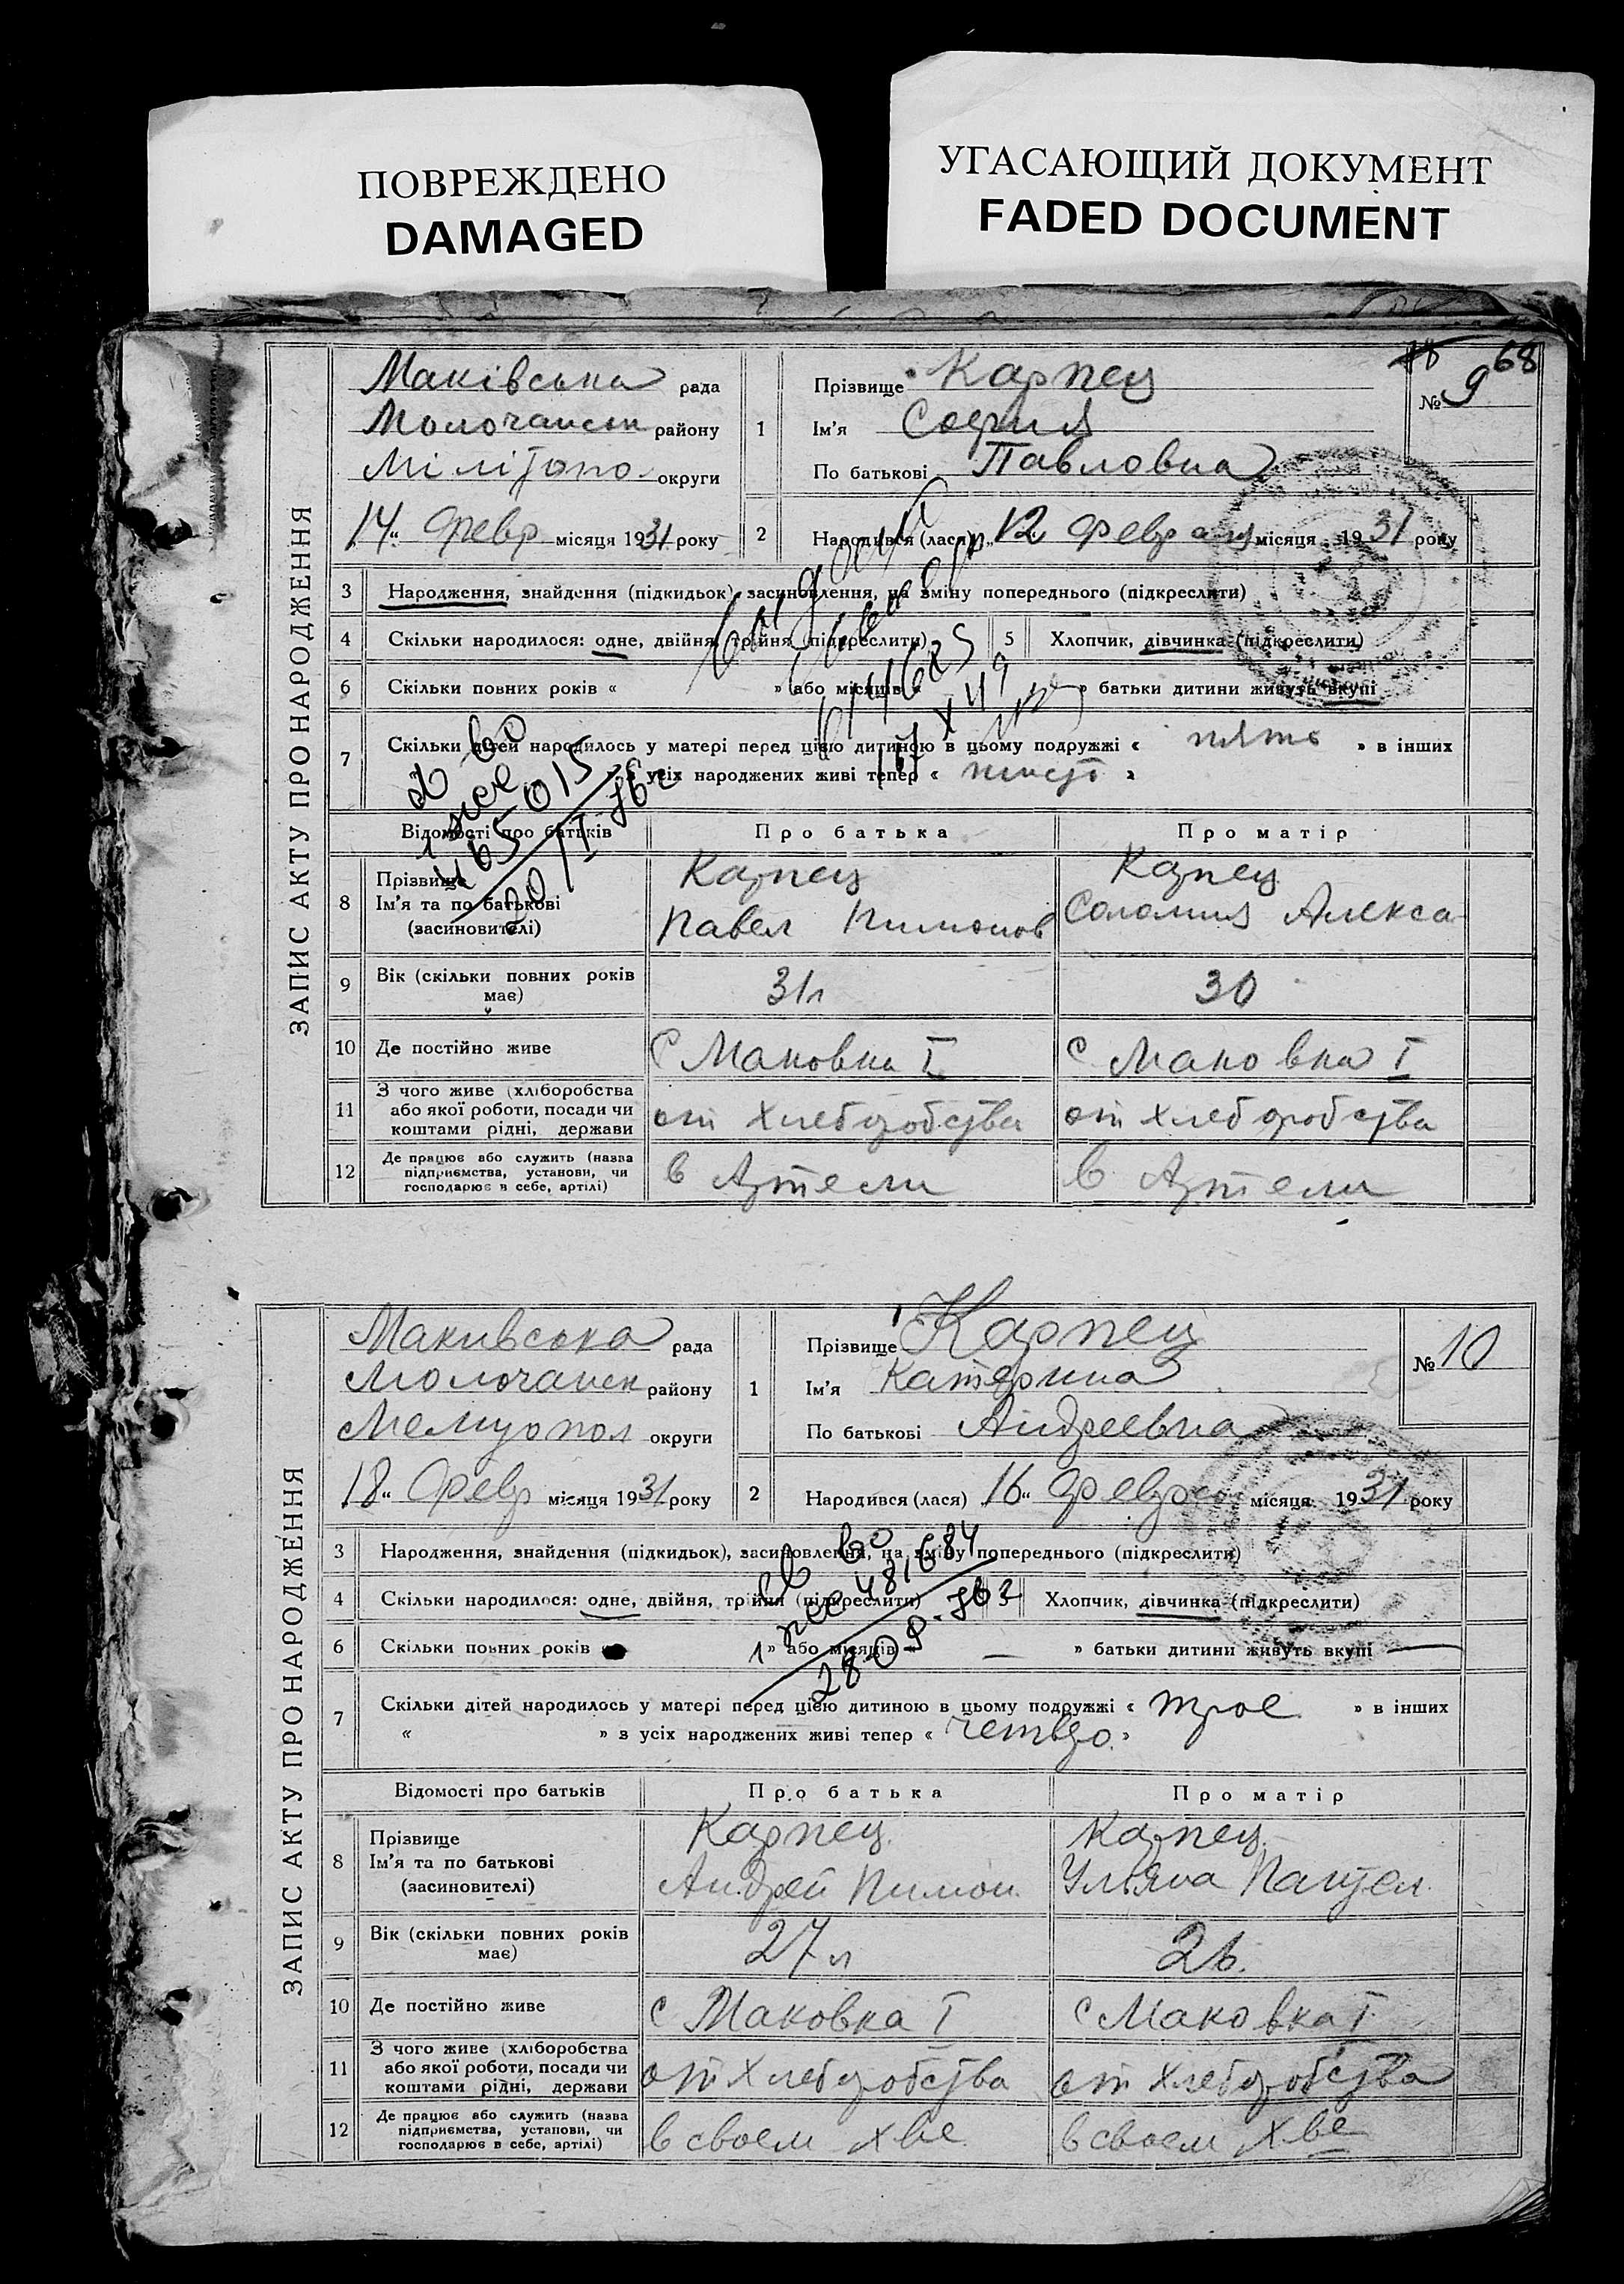 ПОВРЕЖДЕНО
DAMAGED
УГАСАЮЩИЙ ДОКУМЕНТ
FADED DOCUMENT
68
ЗАПИС АКТУ ПРО НАРОДЖЕННЯ
Маківська рада
Молочанськ району
Мілітопо округи
14 „ Февр місяця 1931 року
1 Прізвище Карпец
Ім'я София
По батькові Павловна
№ 9
2 Народився (лася) „12 Февраля місяця 1931 року
3 Народження, знайдення (підкидьок), засиновлення, на зміну попереднього (підкреслити)
4 Скільки народилося: одне, двійня, трійня (підкреслити) 5 Хлопчик, дівчинка (підкреслити)
6 Скільки повних років « » або місяців « » батьки дитини живуть вкупі
7 Скільки дітей народилось у матері перед цією дитиною в цьому подружжі « пять » в інших
з усіх народжених живі тепер « шість »
465015
Відомості про батьків Про батька Про матір
8 Прізвище
Ім'я та по батькові
(засиновителі)
Карпец
Павел Пимонов
Карпец
Соломия Алекса
9 Вік (скільки повних років має) 31л 30
10 Де постійно живе С Маковка I с Маковка I
11 З чого живе (хліборобства
або якої роботи, посади чи
коштами рідні, держави
от хлеборобства от хлеборобства
12 Де працює або служить (назва
підприємства, установи, чи
господарює в себе, артілі)
в Артели в Артели
ЗАПИС АКТУ ПРО НАРОДЖЕННЯ
Макивська рада
Молочанск району
Мелитопол округи
18 „ Февр місяця 1931 року
1 Прізвище Карпец
Ім'я Катерина
По батькові Андреевна
№ 10
2 Народився (лася) 16 „ Февра місяця 1931 року
3 Народження, знайдення (підкидьок), засиновлення, на зміну попереднього (підкреслити)
4 Скільки народилося: одне, двійня, трійня (підкреслити) Хлопчик, дівчинка (підкреслити)
6 Скільки повних років « » або місяців « — » батьки дитини живуть вкупі —
7 Скільки дітей народилось у матері перед цією дитиною в цьому подружжі « трое » в інших
« » з усіх народжених живі тепер « четверо. »
481684
Відомості про батьків Про батька Про матір
8 Прізвище
Ім'я та по батькові
(засиновителі)
Карпец
Андрей Пимон.
Карпец
Уляна Пантел.
9 Вік (скільки повних років має) 27 л 26.
10 Де постійно живе с Маковка I с Маковка I
11 З чого живе (хліборобства
або якої роботи, посади чи
коштами рідні, держави
от хлеборобства от хлеборобства
12 Де працює або служить (назва
підприємства, установи, чи
господарює в себе, артілі)
в своем хве в своем хве